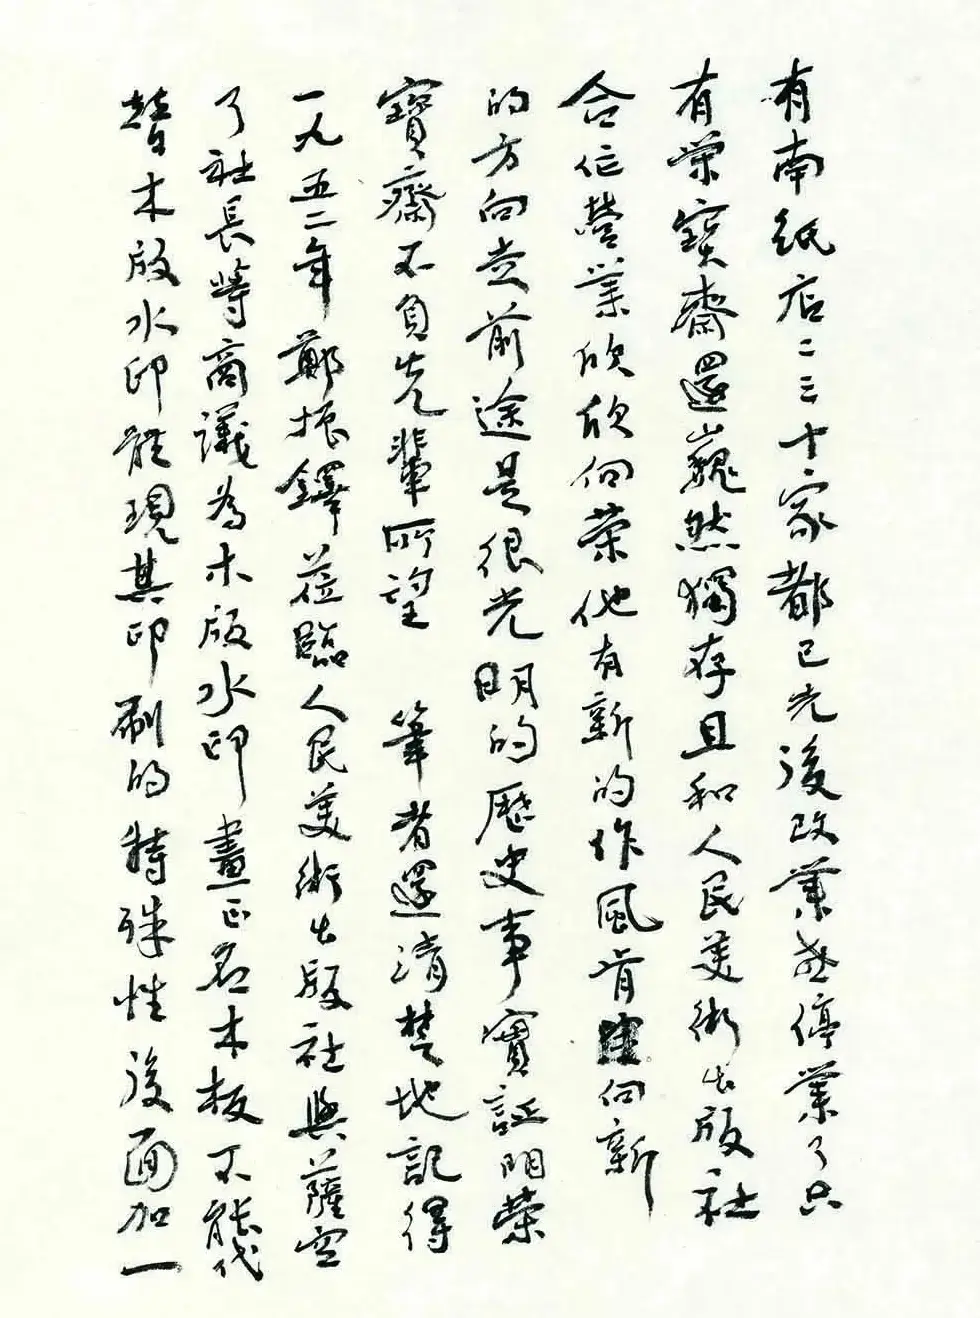 有南紙店二三十家都已先後改業或停業了只
有榮寶齋還巍然獨存且和人民美術出版社
合作營業欣欣向荣他有新的作風肯向新
的方向走前途是很光明的歷史事實証明榮
寶齋不負先輩所望 筆者還清楚地記得
一九五二年鄭振鐸蒞臨人民美術出版社與薩空
了社長特商議為木版水印畫正名木板不能代
替木版水印能體現其印刷的特殊性後面加一